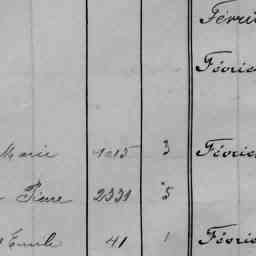 Févri
Févrie
Marie 1015 3 Févrie
Pierre 2331 5
Emile 41 1 Févrie